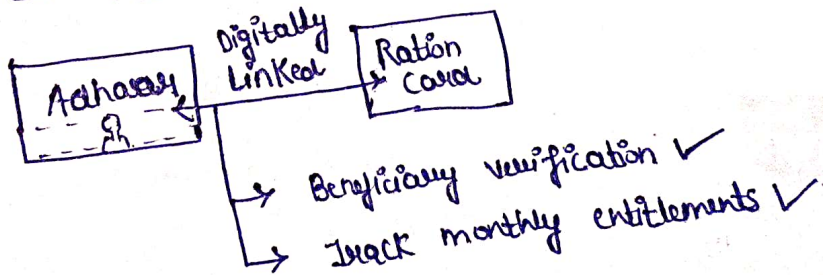 Digitally
Linked
Adhaar
Ration
Card
Beneficiary verification ✓
Track monthly entitlements ✓